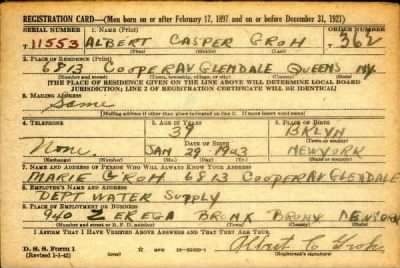 REGISTRATION CARD—(Men born on or after February 17, 1897 and on or before December 31, 1921)
SERIAL NUMBER 1. NAME (Print) ORDER NUMBER
T 11553 ALBERT CASPER GROH T 362
(First) (Middle) (Last)
2. PLACE OF RESIDENCE (Print)
6813 COOPER AV GLENDALE QUEENS NY.
(Number and street) (Town, township, village, or city) (County) (State)
[THE PLACE OF RESIDENCE GIVEN ON THE LINE ABOVE WILL DETERMINE LOCAL BOARD
JURISDICTION; LINE 2 OF REGISTRATION CERTIFICATE WILL BE IDENTICAL]
3. MAILING ADDRESS
Same
[Mailing address if other than place indicated on line 2. If same insert word same]
4. TELEPHONE 5. AGE IN YEARS 6. PLACE OF BIRTH
39 BKLYN
DATE OF BIRTH (Town or county)
None. JAN 29 1903 NEW YORK
(Exchange) (Number) (Mo.) (Day) (Yr.) (State or country)
7. NAME AND ADDRESS OF PERSON WHO WILL ALWAYS KNOW YOUR ADDRESS
MARIE GROH 6813 COOPER AV GLENDALE
8. EMPLOYER'S NAME AND ADDRESS
DEPT WATER SUPPLY
9. PLACE OF EMPLOYMENT OR BUSINESS
940 ZEREGA BRONX BRONX
(Number and street or R. F. D. number) (Town) (County) (State)
I AFFIRM THAT I HAVE VERIFIED ABOVE ANSWERS AND THAT THEY ARE TRUE.
D. S. S. Form 1
(Revised 1-1-42) GPO Albert C Groh
(Registrant's signature)